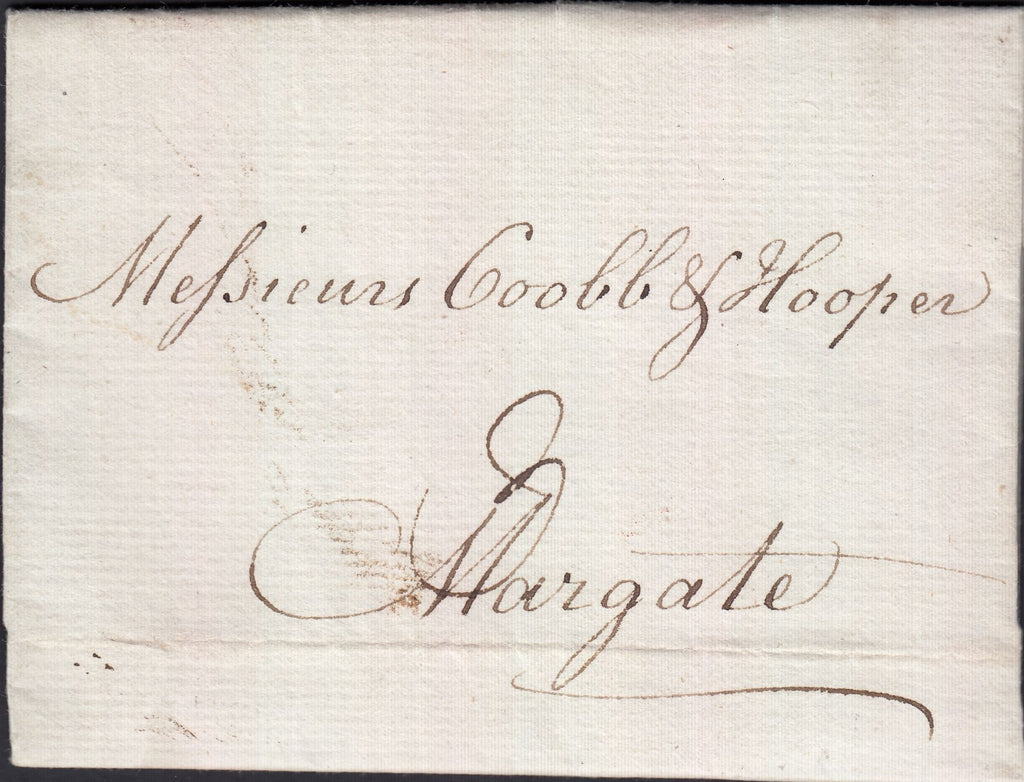 Meſsieurs Coobb & Hooper
2
Margate